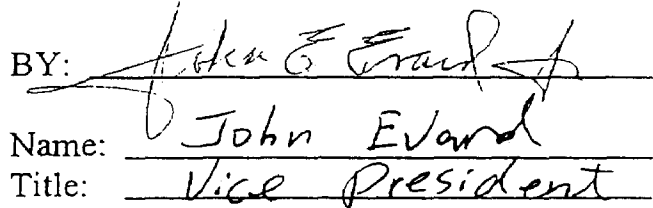 BY: John E Evard Jr
Name: John Evard
Title: Vice President